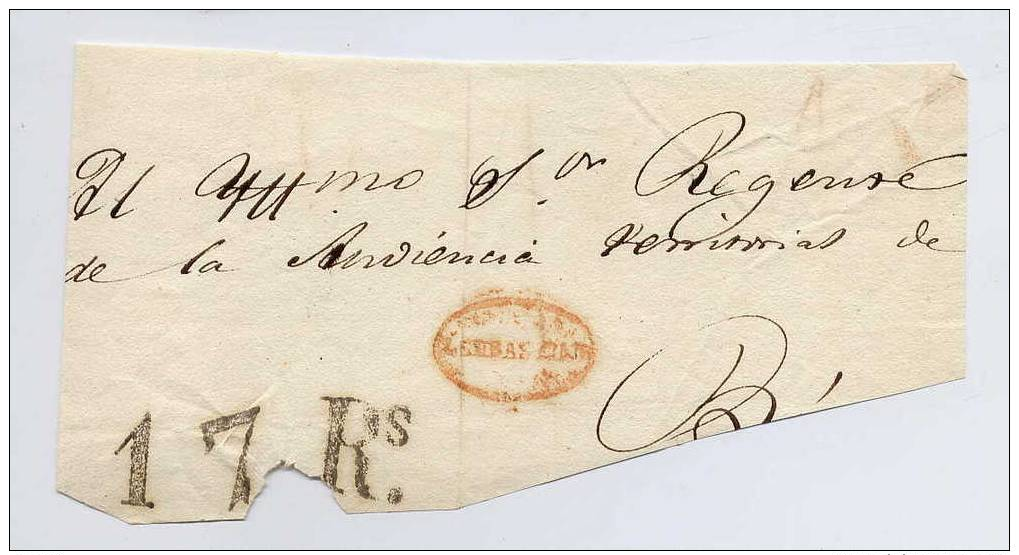 Al Yllmo Sor Regente
de la Audiencia territorial de
17 Rs.